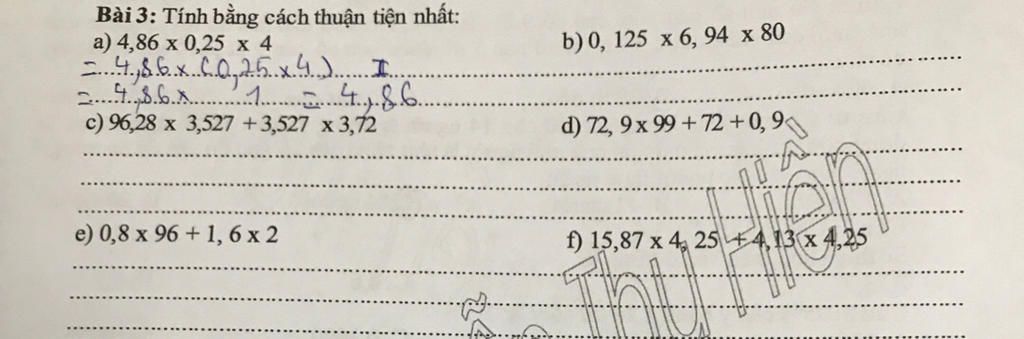 Bài 3: Tính bằng cách thuận tiện nhất:
a) 4,86 x 0,25 x 4
b) 0, 125 x 6, 94 x 80
= 4,86 x (0,25 x 4)
= 4,86 x 1 = 4,86
c) 96,28 x 3,527 + 3,527 x 3,72
d) 72, 9 x 99 + 72 + 0, 9
e) 0,8 x 96 + 1, 6 x 2
f) 15,87 x 4, 25 + 4,13 x 4,25
Thu Hiền